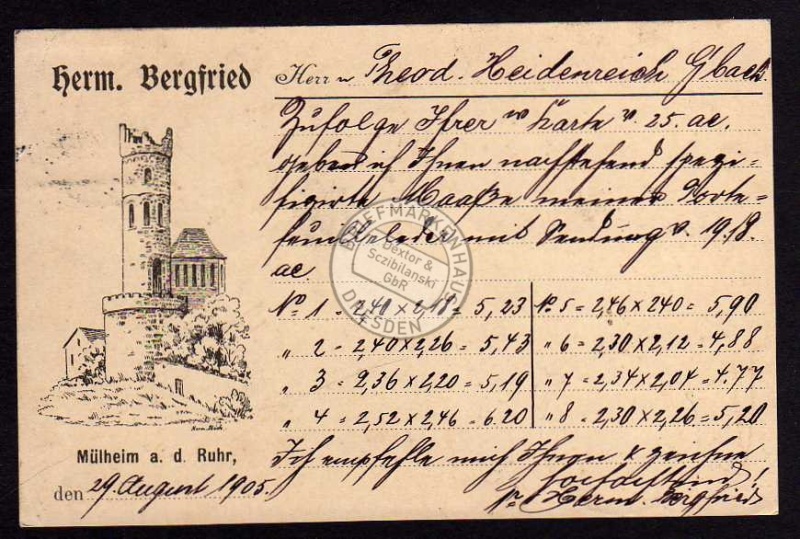 Herm. Bergfried
Herrn Theod. Heidenreich G'bach.
Zufolge Ihrer Karte v. 25. ac.
geben ich Ihnen nachstehend spezi-
fizirte Maaße meiner Porte-
feuilleleder mit Sendung v. 19./8.
ac
No. 1 = 2,40 x 2,18 = 5,23
" 2 = 2,40 x 2,26 = 5,43
" 3 = 2,36 x 2,20 = 5,19
" 4 = 2,52 x 2,46 = 6.20
No. 5 = 2,46 x 240 = 5,90
" 6 = 2,30 x 2,12 = 4,88
" 7 = 2,34 x 2,04 = 4.77
" 8 = 2,30 x 2,26 = 5,20
Ich empfehle mich Ihnen & zeichne
Herm. Bergfried
Mülheim a. d. Ruhr,
den 29. August 1905.
BRIEFMARKENHAUS
Dextor &
Sczibilanski
GbR
DRESDEN